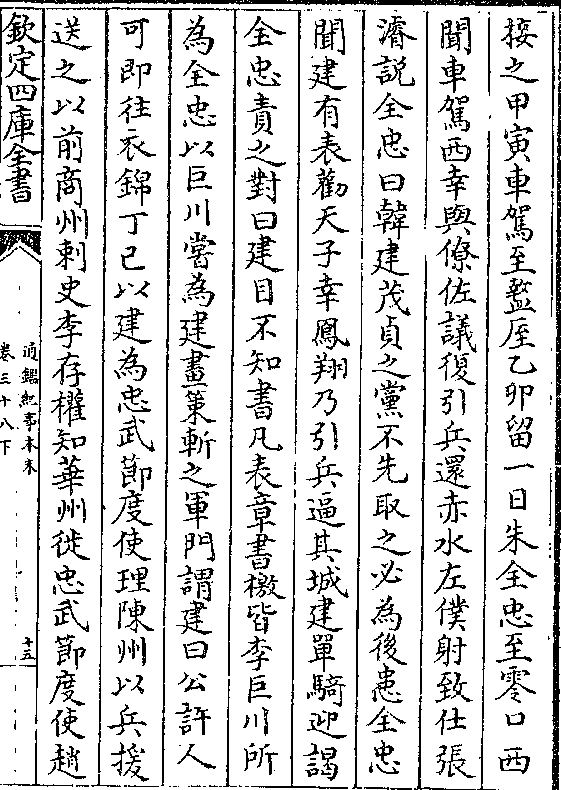 接之甲寅車駕至盩厔乙卯留一日朱全忠至零口西
聞車駕西幸與僚佐議復引兵還赤水左僕射致仕張
濬説全忠曰韓建茂貞之黨不先取之必為後患全忠
聞建有表勸天子幸鳳翔乃引兵逼其城建單騎迎謁
全忠責之對曰建目不知書凡表章書檄皆李巨川所
為全忠以巨川嘗為建畫策斬之軍門謂建曰公許人
可即往衣錦丁已以建為忠武節度使理陳州以兵援
送之以前商州刺史李存權知華州徙忠武節度使趙
欽定四庫全書
通鑑紀事本末
卷三十八下
十五